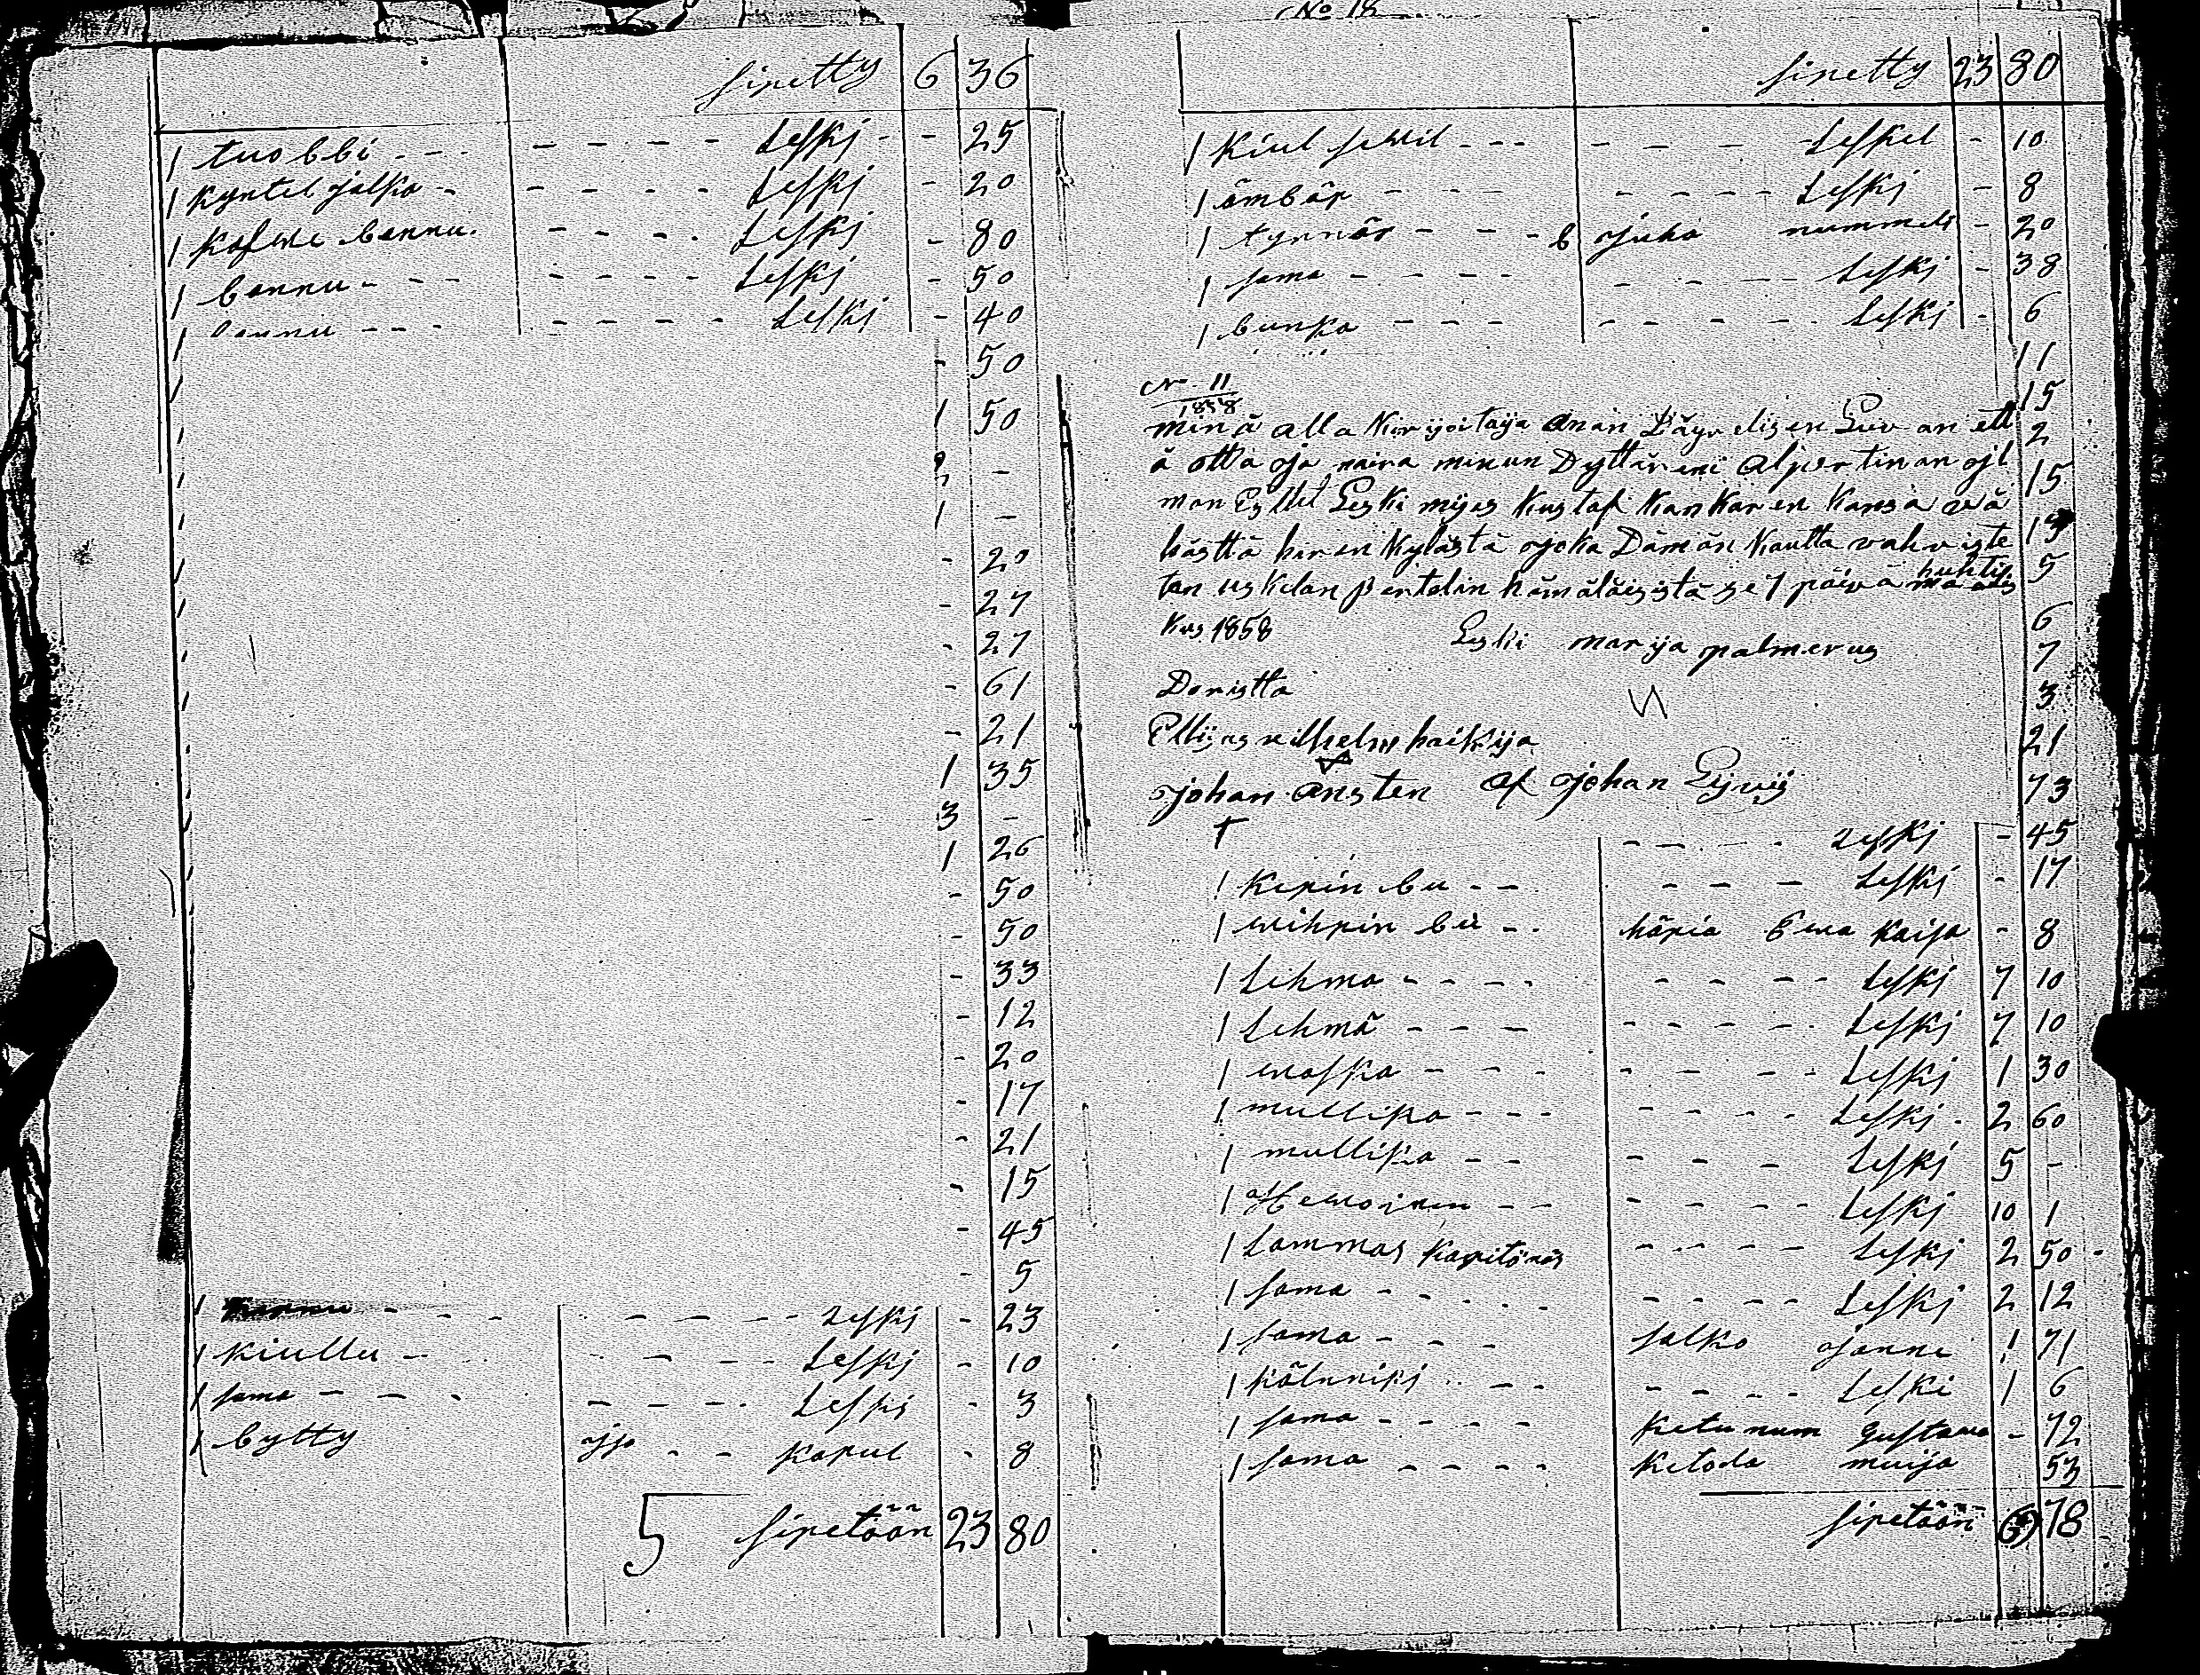 siretty 6 36
1 tuobbi - - - - - - - Leski - - 25
1 kyntel jalka - - - - - - Leski - 20
1 Kafwe bannu - - - - Leski - 80
1 bannu - - - - - - - - Leski - 50
1 bannu - - - - - - - - Leski - 40
- 50
1 50
2 -
1 -
- 20
- 27
- 27
- 61
- 21
1 35
3 -
1 26
- 50
- 50
- 33
- 12
- 20
- 17
- 21
- 15
- 45
- 5
1 - - - - - - - Leski - 23
1 kiullu - - - - - Leski - 10
1 sama - - - - - - - Leski - 3
1 bytty - - karul - 8
5 siretään 23 80
No 18
siretty 23 80
1 Kiul - - - - - - Leskel - 10
1 ämbär - - - - - - - - Leski - 8
1 tynnär - - - - b Juha nummeli - 20
1 sama - - - - - - - Leski - 38
1 bunka - - - - - - - - Leski - 6
11
15
2
15
15
5
6
7
3
21
73
No 11
1858
minä alla Kirjoitaja anan Läyvelisen Luv an ett
ä otta ja naira minun Dyttäreni Alpertinan jl
man Estet Leski mijes Kustaf Kankaren Kansa
hiren Kylästä joka Dämän Kautta vahviste
tan us Kelan pentelin hämäläisistä se 1 päivä huhti
Kus 1858 Leski marija palmerus
Doristta
Elijas vilhelm haikija
Johan Ansten af Johan
- - - - Leski - 45
1 Kirin bu - - - - - Leski - 17
1 wihrin bu - - Häria Ewa Kaisa - 8
1 Lehmä - - - - - - - - Leski 7 10
1 Lehmä - - - - - - - Leski 7 10
1 waska - - - - - - - - Leski 1 30
1 mullika - - - - - - - Leski - 2 60
1 mullika - - - - - Leski 5 -
1 Hewoinen - - - - - - Leski 10 1
1 Lammas karitöinäs - - - - Leski 2 50 -
1 sama - - - - - - - - - Leski 2 12
1 sama - - - salko Janne 1 71
1 - - - - - - Leski 1 6
1 sama - - - - Ketunum Gustawa - 72
1 sama - - - - Ketola muija 53
siretään 69 78